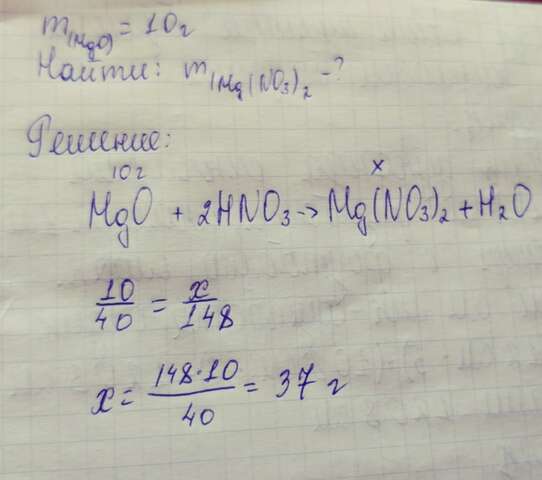 m(MgO) = 10г
Найти: m(Mg(NO₃)₂ -?
Решение:
10г x
MgO + 2HNO₃ -> Mg(NO₃)₂ + H₂O
10/40 = x/148
x = 148·10/40 = 37 г